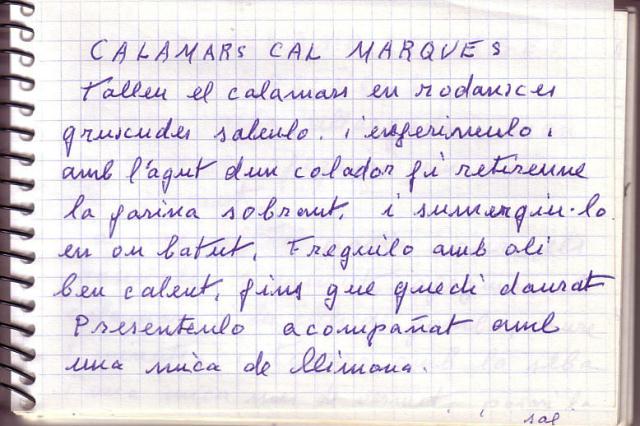 CALAMARS CAL MARQUES
Talleu el calamars en rodanxes
gruixudes saleulo. i enferineulo.
amb l'agut d'un colador fi retireune
la farina sobrant, i sumergiu-lo
en ou batut. Freguilo amb oli
ben calent, fins que quedi daurat
Presenteulo acompañat amb
una mica de llimona.
sal